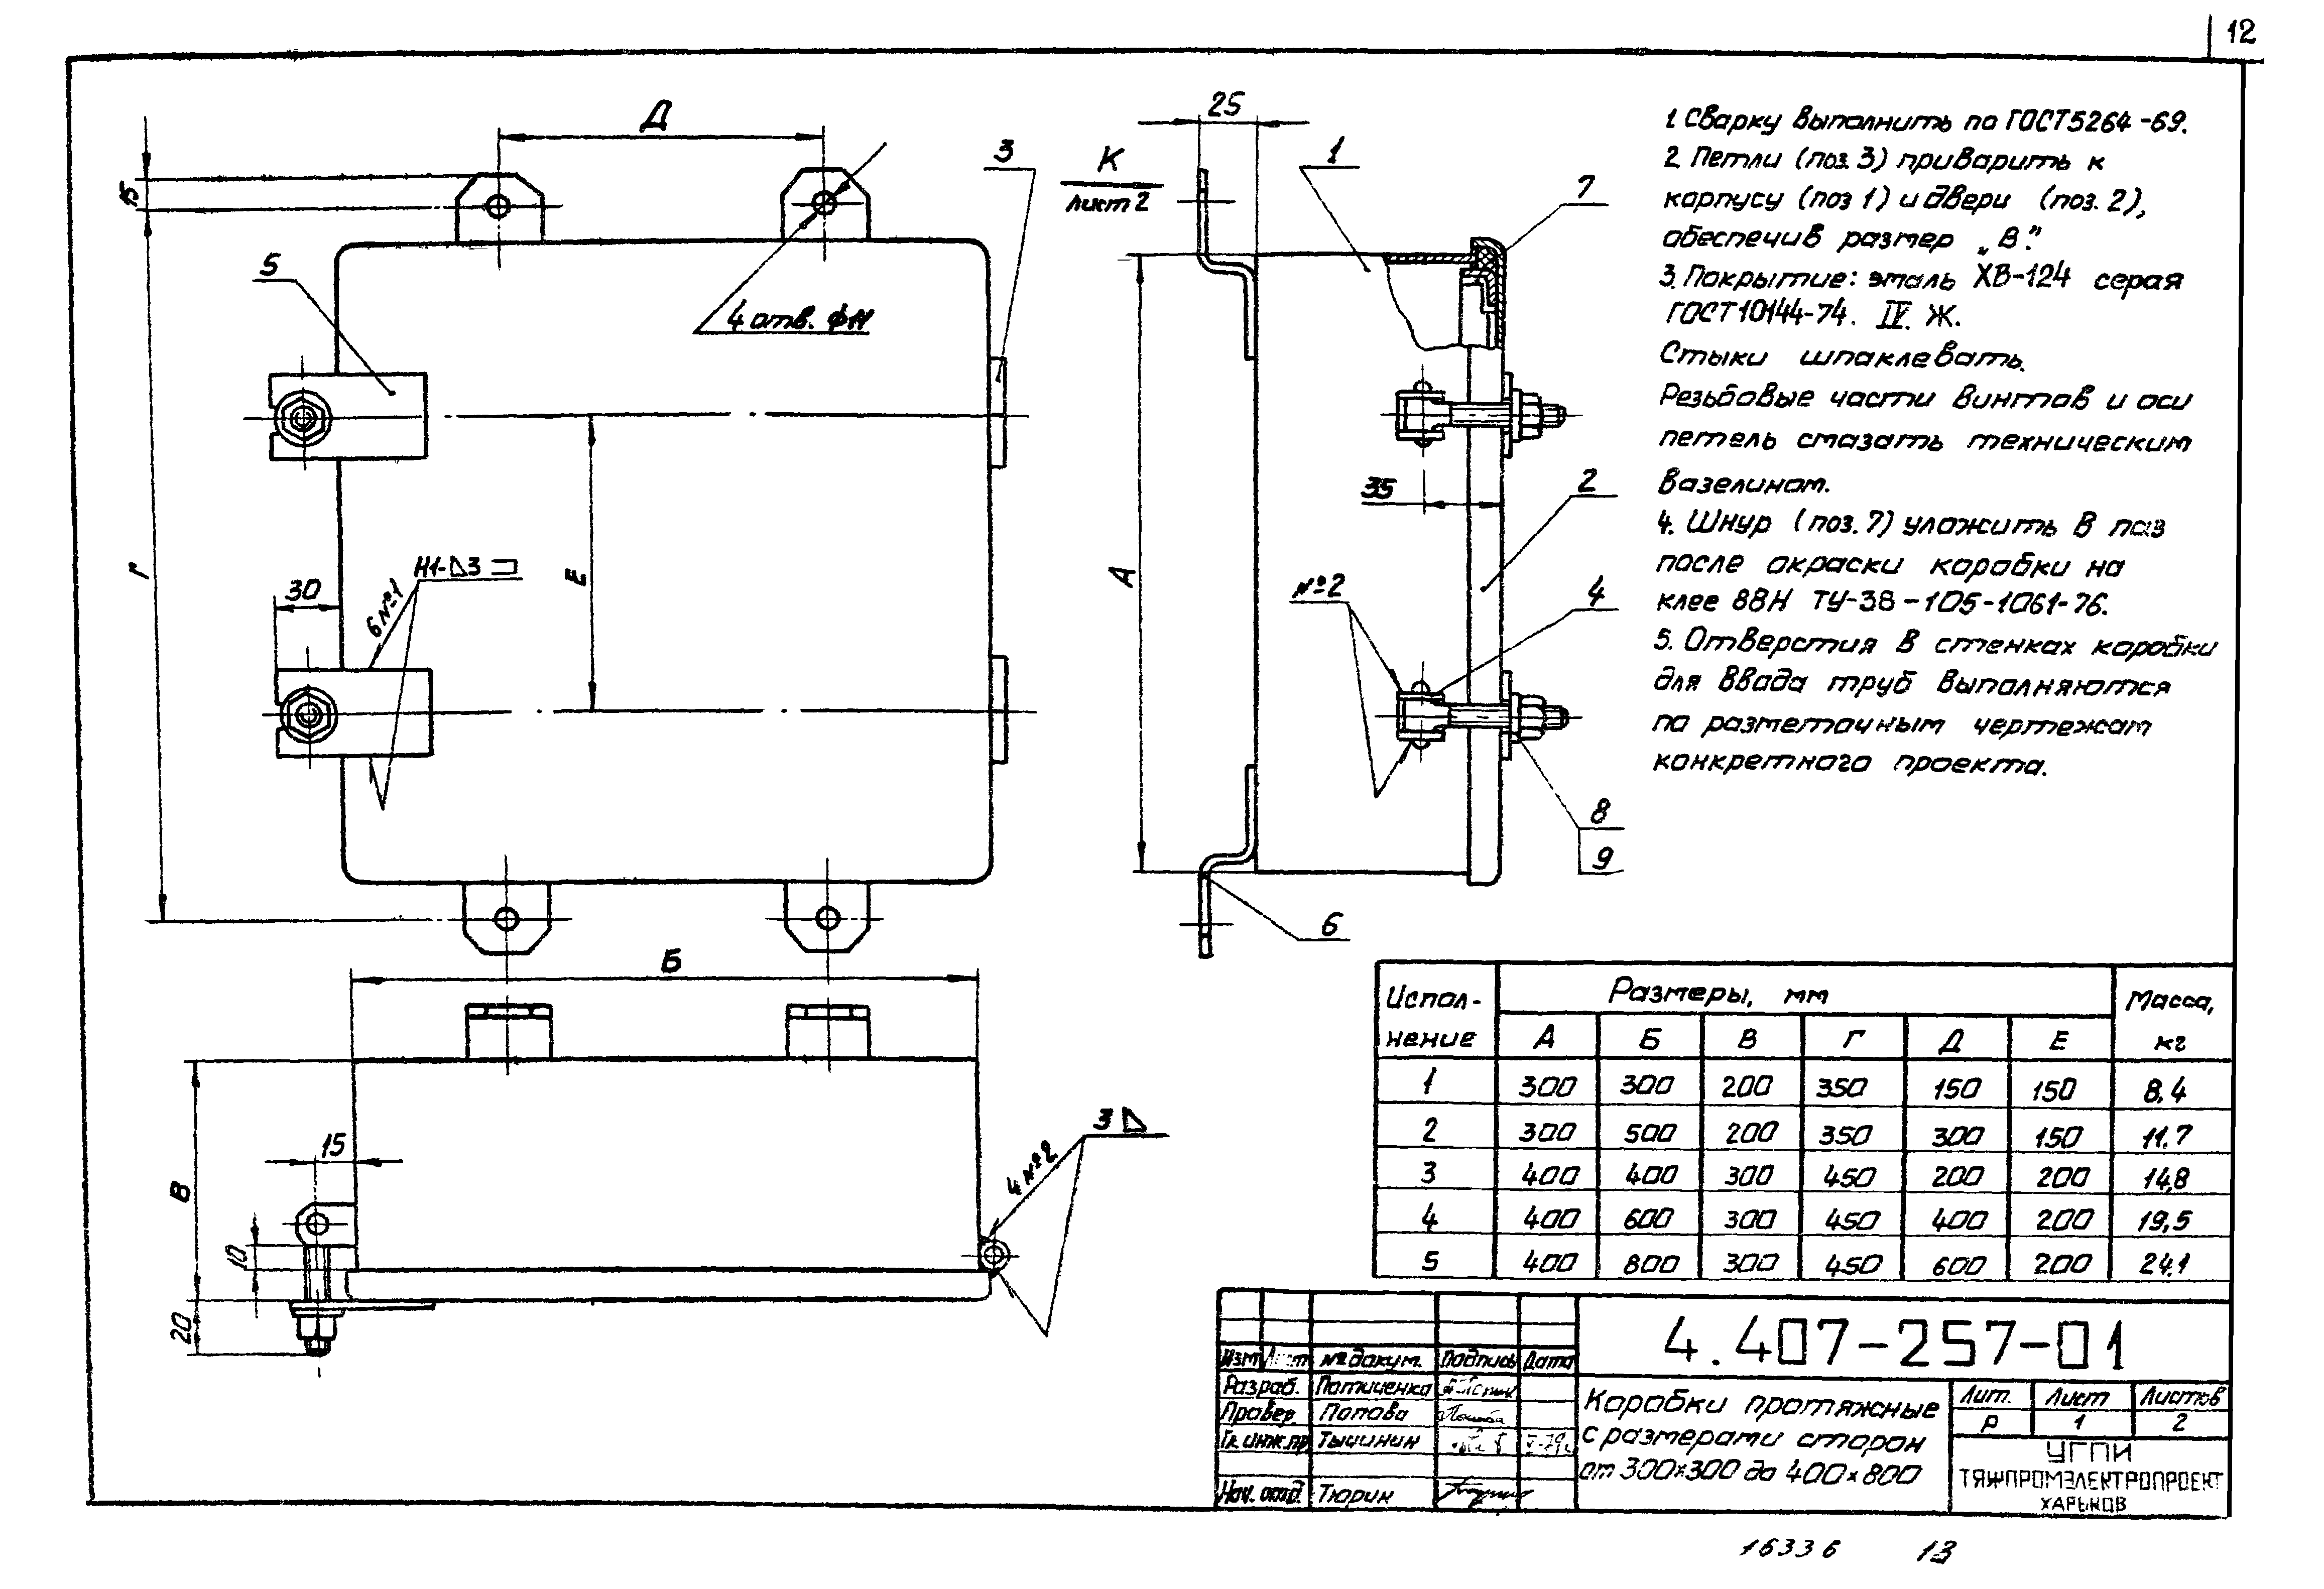 12
Д
15
5
4 отв. Ф11
3
К
лист 2
25
1
7
Г
Е
30
6 №1
Н1-⊿3
А
35
2
№2
4
8
9
6
Б
В
15
10
20
4 №2
3
1. Сварку выполнить по ГОСТ 5264-69.
2. Петли (поз. 3) приварить к
корпусу (поз 1) и двери (поз. 2),
обеспечив размер „В".
3. Покрытие: эмаль ХВ-124 серая
ГОСТ 10144-74. IV. Ж.
Стыки шпаклевать.
Резьбовые части винтов и оси
петель смазать техническим
вазелином.
4. Шнур (поз. 7) уложить в паз
после окраски коробки на
клее 88Н ТУ-38-105-1061-76.
5. Отверстия в стенках коробки
для ввода труб выполняются
по разметочным чертежам
конкретного проекта.
Испол- Размеры, мм Масса,
нение А Б В Г Д Е кг
1 300 300 200 350 150 150 8,4
2 300 500 200 350 300 150 11.7
3 400 400 300 450 200 200 14,8
4 400 600 300 450 400 200 19,5
5 400 800 300 450 600 200 24,1
4.407-257-01
Изм Лист № докум. Подпись Дата
Разраб. Потиченко
Провер. Попова
Гл. инж. пр Тычинин
Нач. отд. Тюрин
Коробки протяжные
с размерами сторон
от 300×300 до 400×800
Лит. Лист Листов
Р 1 2
УГПИ
ТЯЖПРОМЭЛЕКТРОПРОЕКТ
ХАРЬКОВ
16336 13